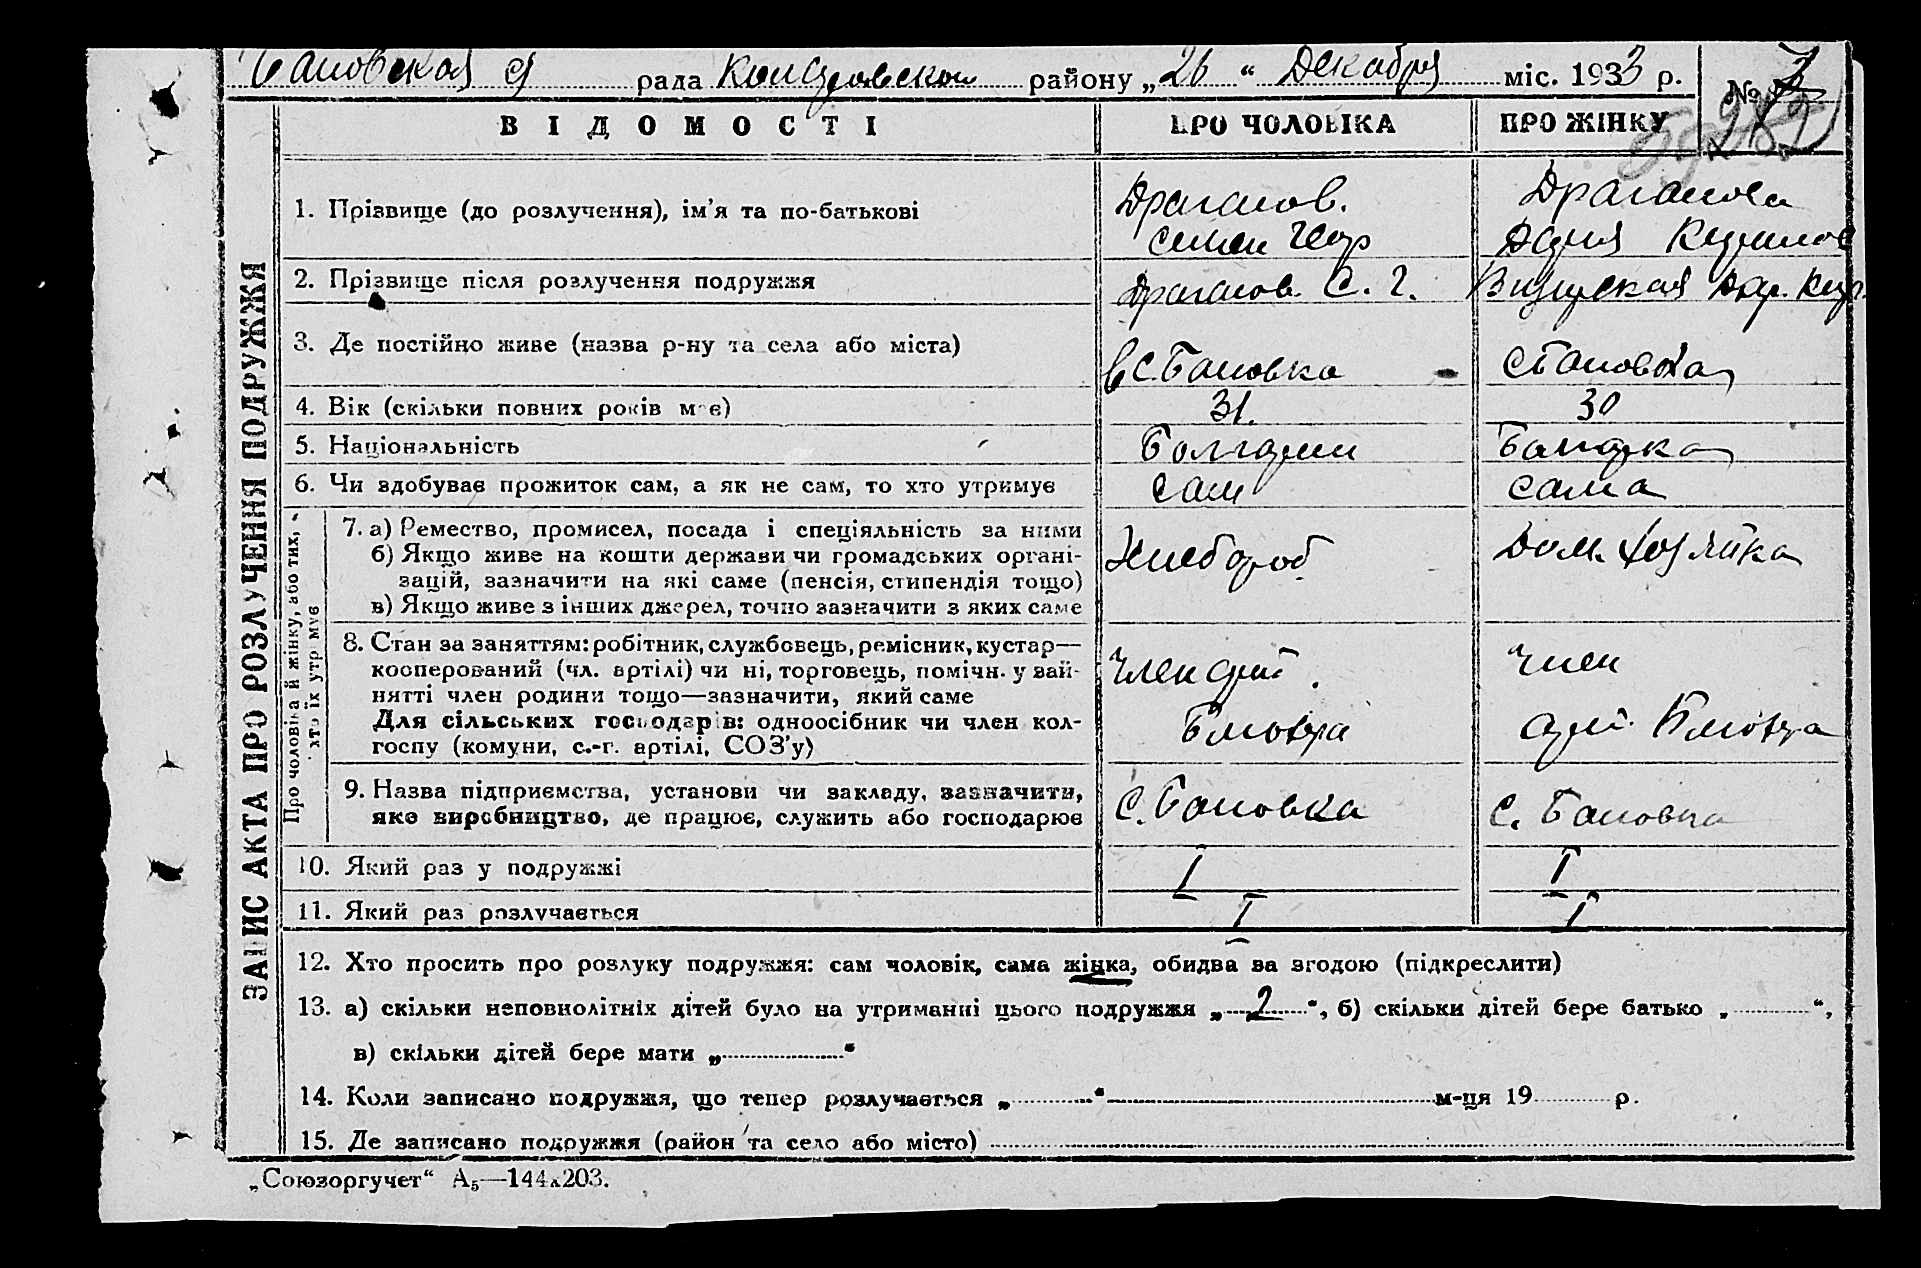 Бановская с рада Коларовском району „26“ Декабря міс. 1933 р. №
282
ВІДОМОСТІ ПРО ЧОЛОВІКА ПРО ЖІНКУ
ЗАПИС АКТА ПРО РОЗЛУЧЕННЯ ПОДРУЖЖЯ
1. Прізвище (до розлучення), ім’я та по-батькові
Драганов. Драганова
Семен Геор Дария Кирилов
2. Прізвище після розлучення подружжя Драганов. С. Г. Дар. Кир.
3. Де постійно живе (назва р-ну та села або міста) в с. Бановка с Бановка
4. Вік (скільки повних років має) 31. 30
5. Національність Болгарин Болгарка
6. Чи здобуває прожиток сам, а як не сам, то хто утримує сам сама
Про чоловіка й жінку, або тих, хто їх утримує
7. а) Ремество, промисел, посада і спеціяльність за ними
б) Якщо живе на кошти держави чи громадських органі-
зацій, зазначити на які саме (пенсія, стипендія тощо)
в) Якщо живе з інших джерел, точно зазначити з яких саме
Хлебороб Дом. хозяйка
8. Стан за заняттям: робітник, службовець, ремісник, кустар—
кооперований (чл. артілі) чи ні, торговець, помічн. у зай-
нятті член родини тощо—зазначити, який саме
Для сільських господарів: одноосібник чи член кол-
госпу (комуни, с.-г. артілі, СОЗ’у)
Член арт. Член
Блюхера арт. Блюхера
9. Назва підприємства, установи чи закладу, зазначити,
яке виробництво, де працює, служить або господарює
С. Бановка С. Бановка
10. Який раз у подружжі I I
11. Який раз розлучається I I
12. Хто просить про розлуку подружжя: сам чоловік, сама жінка, обидва за згодою (підкреслити)
13. а) скільки неповнолітніх дітей було на утриманні цього подружжя „2“, б) скільки дітей бере батько „ “,
в) скільки дітей бере мати „ “
14. Коли записано подружжя, що тепер розлучається „ “ м-ця 19 р.
15. Де записано подружжя (район та село або місто)
„Союзоргучет“ А₅—144х203.